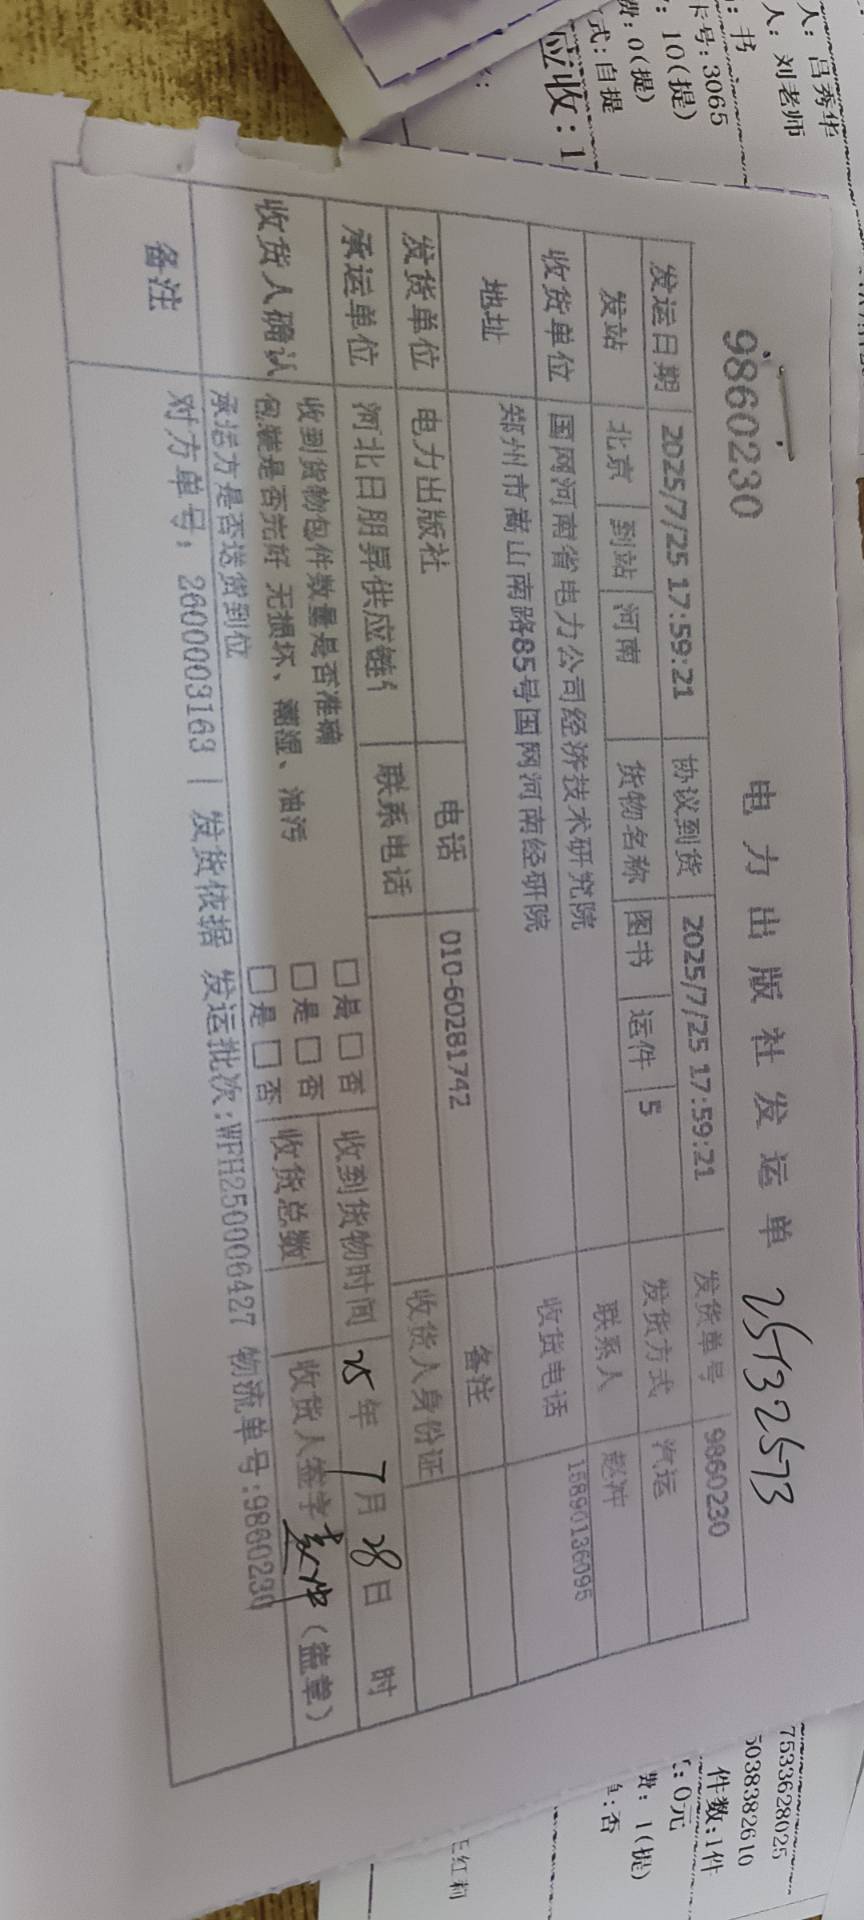 9860230
电力出版社发运单 25132573
发运日期 2025/7/25 17:59:21 协议到货 2025/7/25 17:59:21 发货单号 9860230
发站 北京 到站 河南 货物名称 图书 运件 5 发货方式 汽运
收货单位 国网河南省电力公司经济技术研究院 联系人 赵冲
地址 郑州市嵩山南路85号国网河南经研院 收货电话 15890136095
发货单位 电力出版社 电话 010-60281742 备注
承运单位 河北日朋昇供应链 联系电话 收货人身份证
收货人确认 收到货物包件数量是否准确 □是□否 收到货物时间 25年7月28日 时
包装是否完好 无损坏、潮湿、油污 □是□否 收货总数 收货人签字 (盖章)
承运方是否送货到位 □是□否
备注 对方单号：2600003163 | 发货依据 发运批次:WFH250006427 物流单号:9860230
人：吕秀华
人：刘老师
：书
卡号:3065
：10(提)
费:0(提)
式:自提
应收：1
7533628025
5038382610
件数:1件
:0元
费：1(提)
:否
王红莉